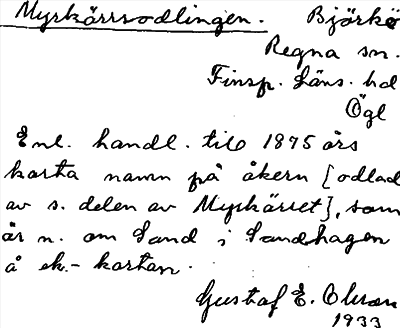 Myrkärrsodlingen. Björkö
Regna sn.
Finsp. Läns. hd
Ögl
Enl. handl. till 1875 års
karta namn på åkern [odlad
av s. delen av Myrkärret], som
är n. om Sand i Sandhagen
å ek.-kartan.
Gustaf E. Olsson
1933